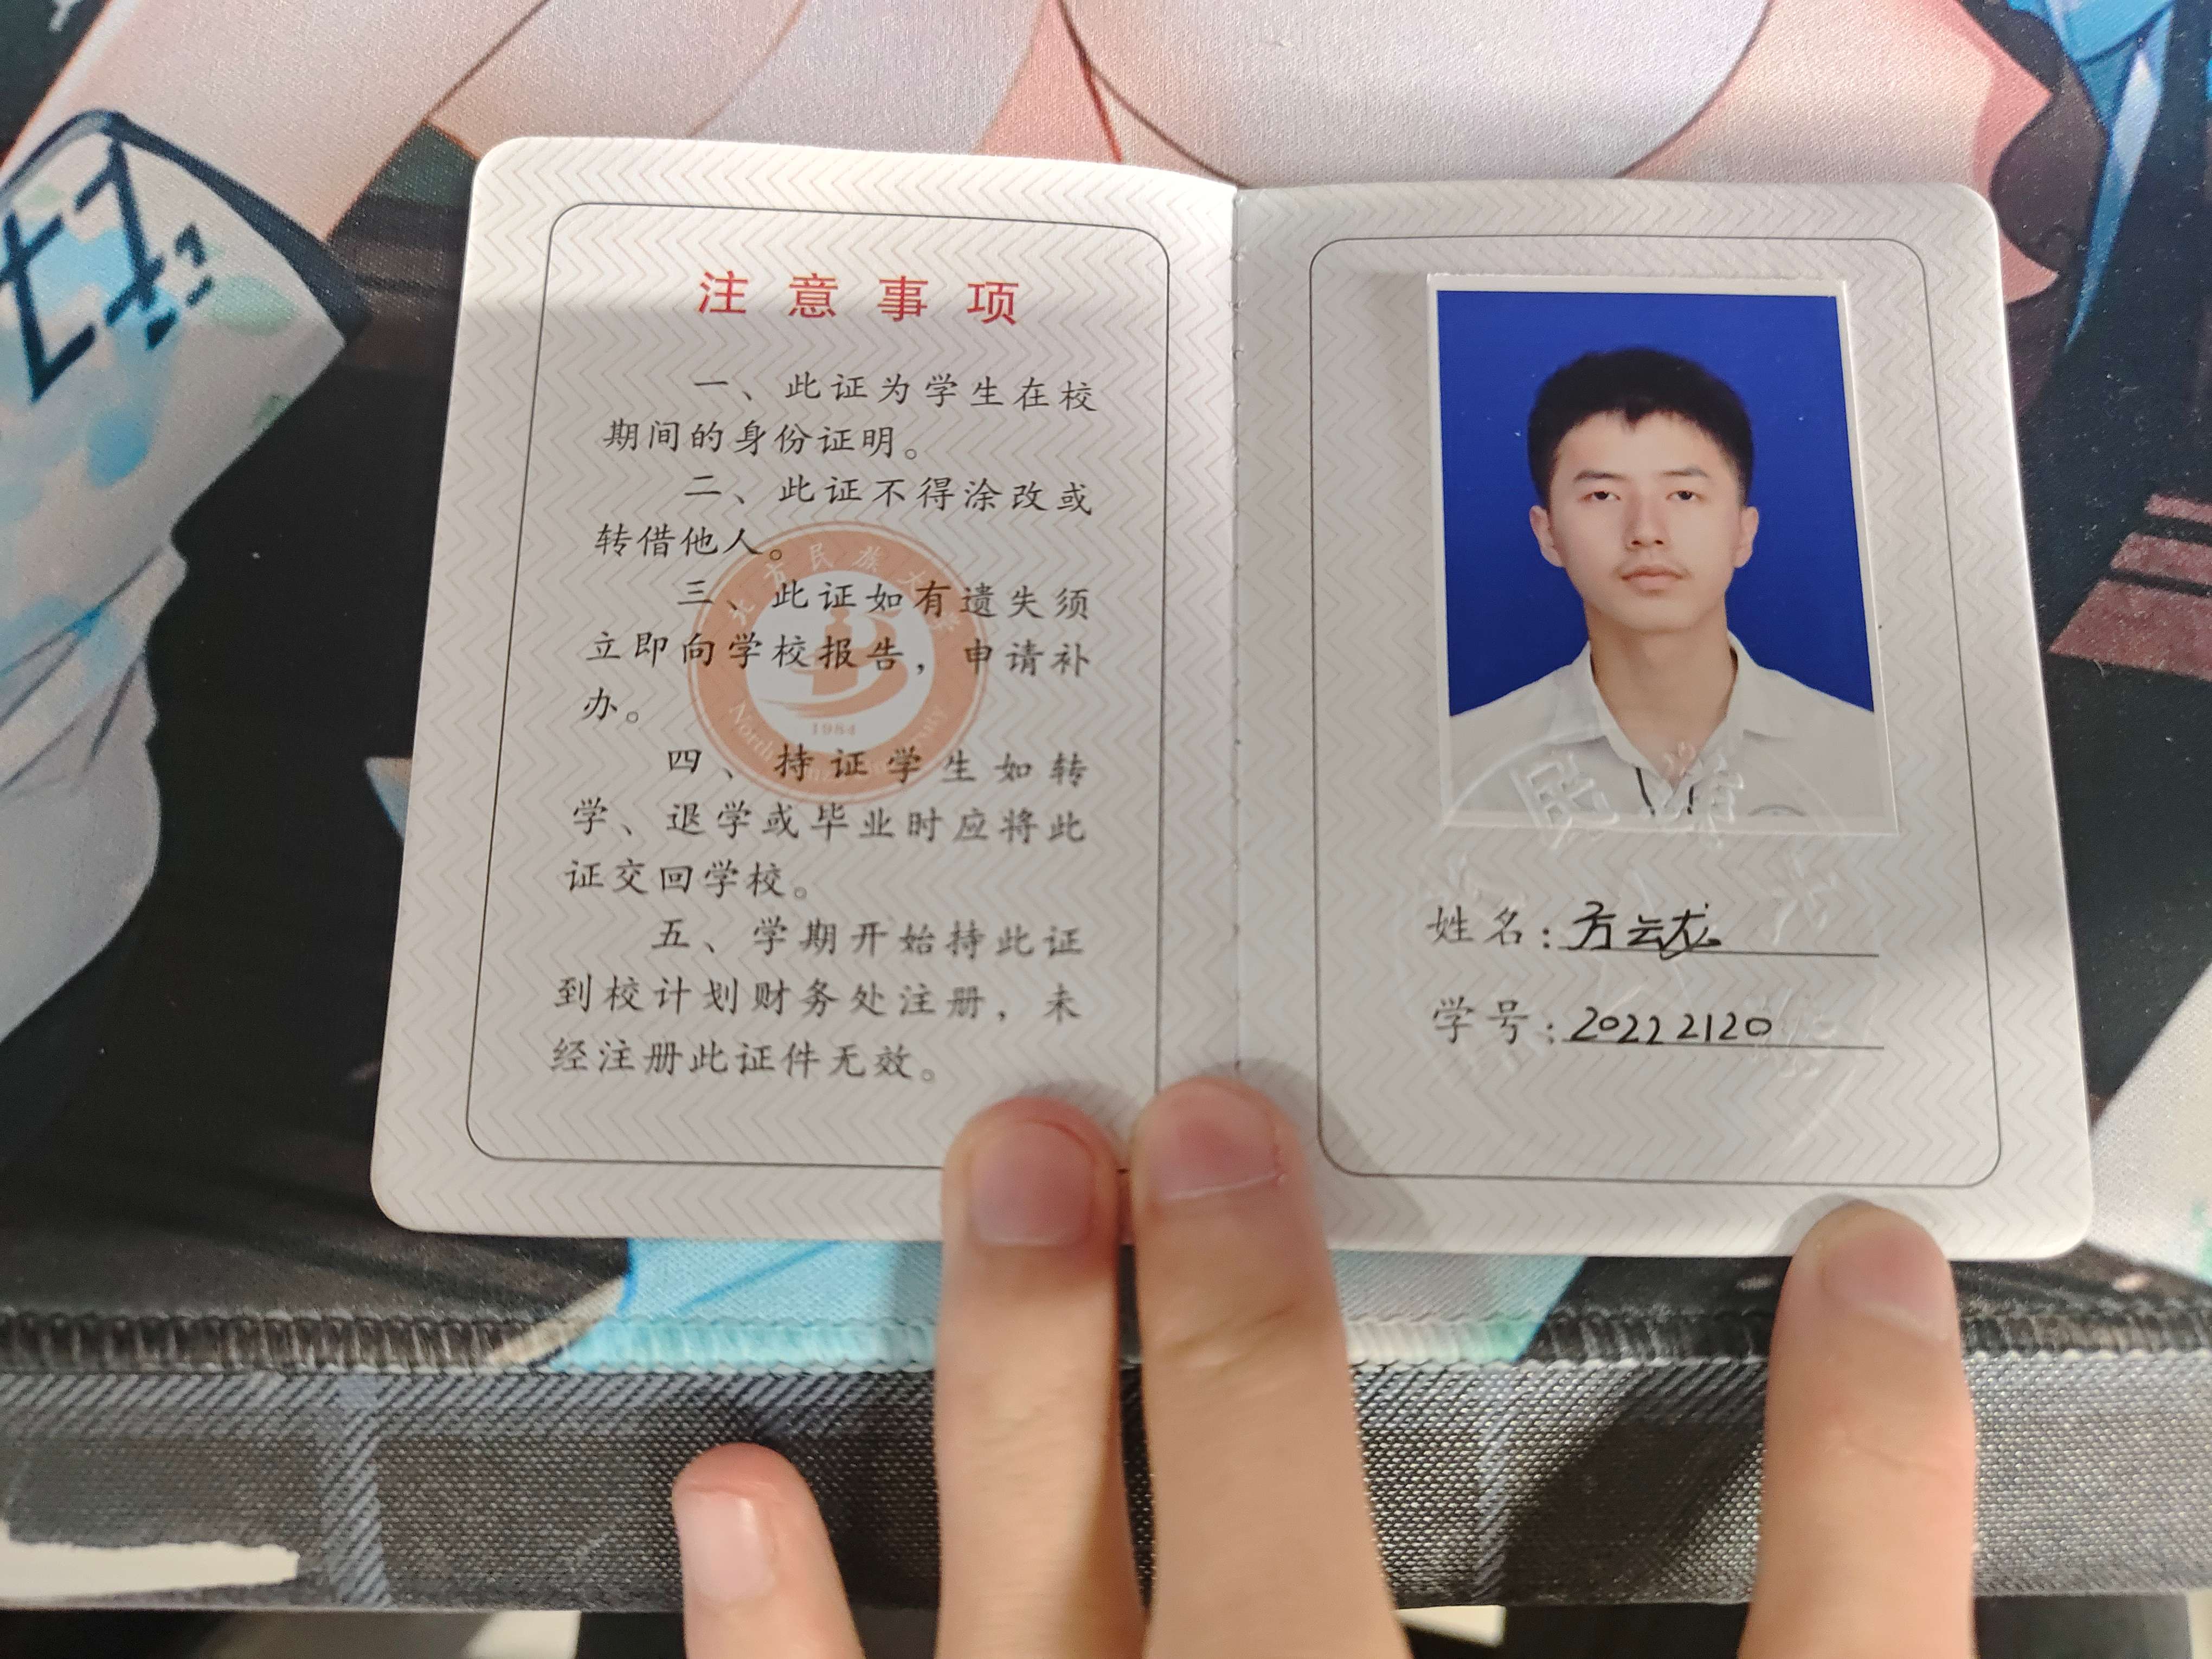 注意事项
一、此证为学生在校
期间的身份证明。
二、此证不得涂改或
转借他人。
三、此证如有遗失须
立即向学校报告，申请补
办。
四、持证学生如转
学、退学或毕业时应将此
证交回学校。
五、学期开始持此证
到校计划财务处注册，未
经注册此证件无效。
北方民族大学
1984
North Minzu University
姓名：方云龙
学号：20222120